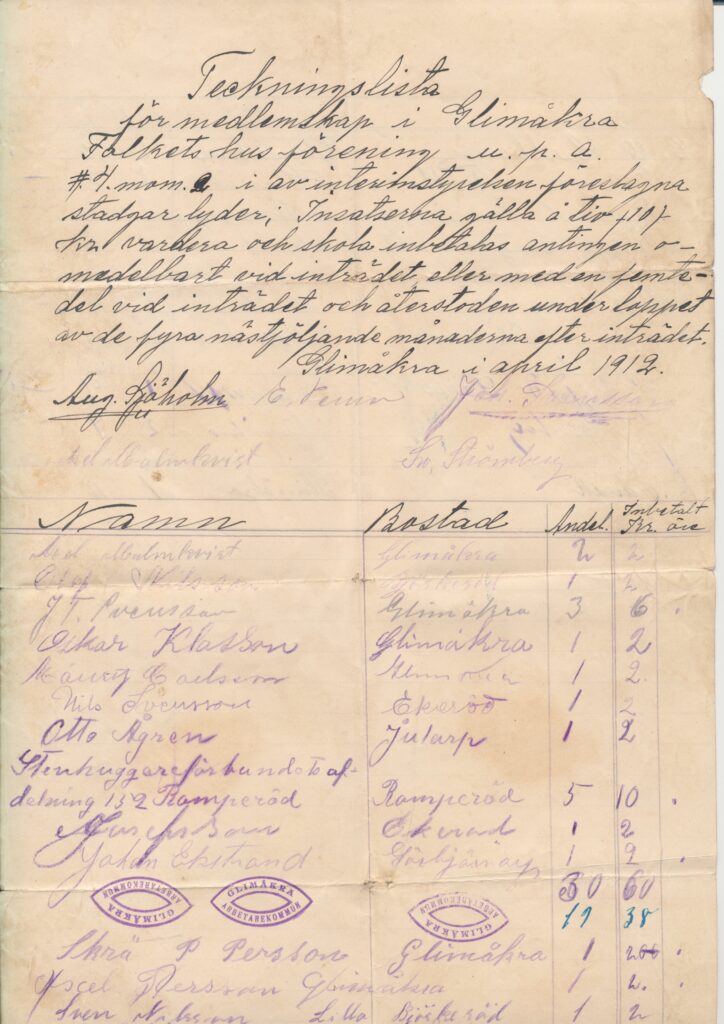 Teckningslista
för medlemskap i Glimåkra
Folkets hus förening u. p. a.
#.4. mom. i av interimstyrelsen föreslagna
stadgar lyder; Insatserna gälla å tio (10)
kr vardera och skola inbetalas antingen o-
medelbart vid inträdet eller med en femte-
del vid inträdet och återstoden under loppet
av de fyra nästföljande månaderna efter inträdet.
Glimåkra i april 1912.
Aug. Sjöholm E. Joh. Svensson
Axel Malmkvist Sv. Strömberg
Namn Bostad Andel. Inbetalt
Kr. öre
Axel Malmkvist Glimåkra 2 2
Olof Nilsson 1 2
J. T. Svensson Glimåkra 3 6 .
Oskar Klasson Glimåkra 1 2
Carlsson 1 2.
Nils Svensson Ekeröd 1 2
Otto Ågren Jutarp 1 2
Stenhuggareförbundets af-
delning 132 Ramperöd Ramperöd 5 10 .
1 2
Johan Ekstrand 1 2 .
30 60
GLIMÅKRA ARBETAREKOMMUN GLIMÅKRA ARBETAREKOMMUN GLIMÅKRA ARBETAREKOMMUN
19 38
Skrä P Persson Glimåkra 1 .
Axel Persson Glimåkra 1 2. .
Sven Nilsson L. Illa Björkeröd 1 2